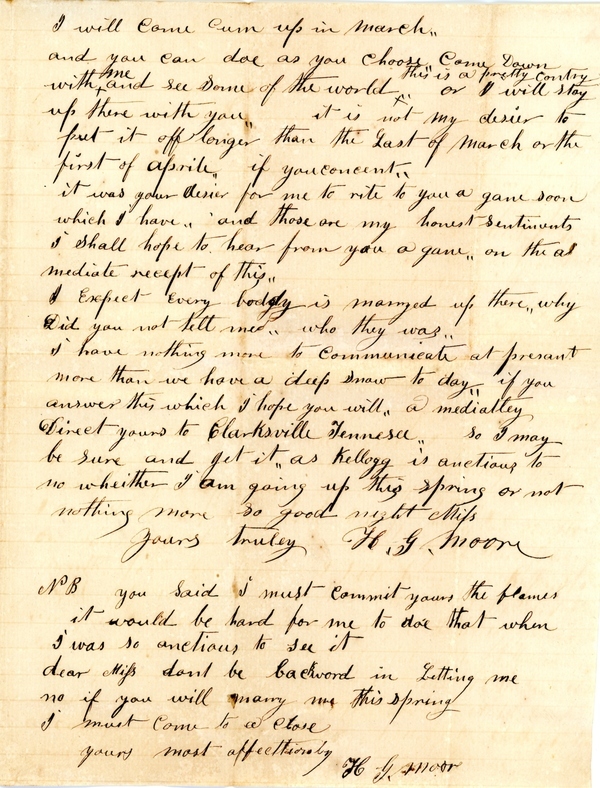 I will Come Cum up in March,,
and you can doe as you Choose,, Come Down
with me and see Some of the world,, this is a pretty contry or I will stay
up there with you,, it is not my desier to
put it off longer than the Last of March or the
first of Aprile,, if you concent,,
it was your desier for me to rite to you a gane soon
which I have,, and those are my honest Sentiments
I shall hope to hear from you a gane,, on the a
mediate recept of this,,
I Expect Every boddy is marryed up there,, why
Did you not tell mee,, who they was,,
I have nothing more to Communicate at presant
more than we have a deep Snow to day,, if you
answer this which I hope you will,, a mediatley
Direct yours to Clarksville Tennesee,, So I may
be Sure and get it,, as Kellogg is anctious to
no wheither I am going up this Spring or not
nothing more So good night Miss
Yours truley H. G. Moore
NB you Said I must Commit yours the flames
it would be hard for me to doe that when
I was so anctious to See it
dear Miss dont be backword in Letting me
no if you will marry me this Spring
I must Come to a Close
yours most H G Moor